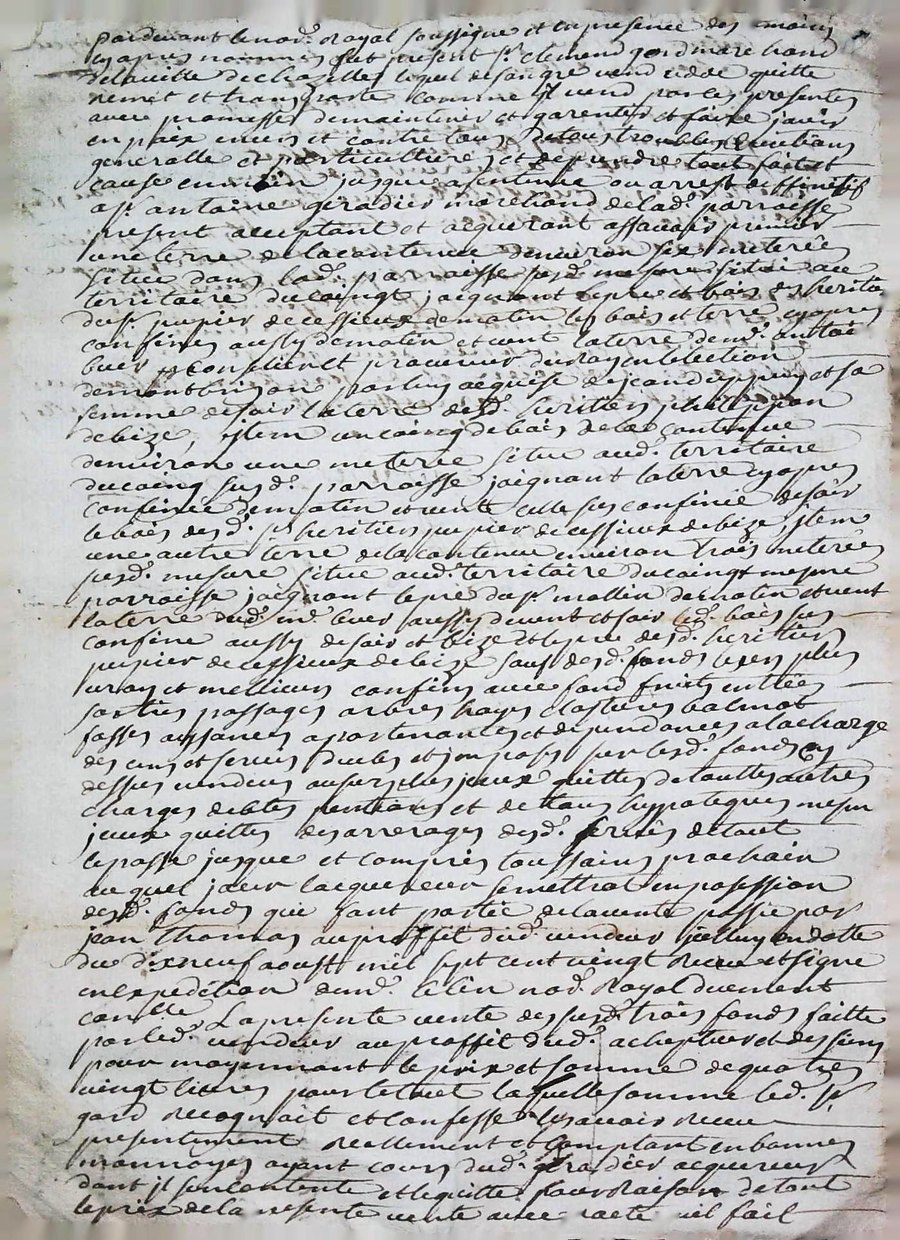 pardevant le nore. Royal soussigné et en presence des tesmoins
cy apres nommes fut present sr. clement gord marchand
de la ville de chazelles lequel de son gre vend cedde quitte
remet et transporte comme il vend par ces presentes
avec promesses de maintenir et garentir et faire jouir
en paix envers et contre tous de tous troubles evictions
generalle et particulliere et de prendre tout fait et
cause en main jusques a sentence ou arrest deffinitif
a sr. antoine geradier marchand de lad. parroisse
present acceptant et acquerant assavoir premier
une terre de la contenue d'environ six meterées
situé dans lad. parroisse susd. mesure situé au
territoire du coingt joignant le pre et bois des heritiers
du sr. pupier de cessieux de matin les bois et terre cy apres
confinés aussy de matin et vent la terre de me.
buer conseilier et procureur du roy en lelection
de montbrison par luy acquise de jean dupuy et sa
femme de soir la terre desd. heritiers
de bize, jtem un coing de bois de la contenue
denviron une meterée situé aud. territoire
du coing susd. parroisse joignant la terre cy apres
confinée de matin et vent celle sus confinée de soir
le bois desd. srs. heritiers pupier de cessieux de bize, jtem
une autre terre de la contenue environ trois meterées
susd. mesure situé aud. territoire du coingt mesme
parroisse joignant le pre du sr. mollin de matin et vent
la terre dud. me. buer aussy de vent et soir led. bois sus
confine aussy de soir et bize et le pre desd. heritiers
pupier de cessieux de bize sauf desd. fonds leurs plus
vray et meilleurs confins avec fond fruits entrées
sorties passages arbres hayes clostures
fosses aysances apartenances et dependances a la charge
des cens et servis deubs et imposés sur lesd. fonds cy
dessus vendus au surplus jceux quittes de touttes autres
charges debtes pentions et de tous hyppoteques mesme
jceux quittes des arrerages desd. servis de tout
le passé jusques et compris toussains prochain
auquel jour lacquereur se mettrat en possession
desd. fonds qui font partie de la vente passée par
jean thomas au proffit dud. vendeur jcelluy en datte
du dix neuf aoust mil sept cent vingt receu et signé
en expedition de me. nore. Royal duement
conllé La presente vente des susd. trois fonds faitte
par led. vendeur au proffit dud. achepteur et des siens
pour moyennant le prix et somme de quatres
vingt livres pour le tout laquelle somme led. sr.
gord recognoit et confesse les avoir receu
presentement reellement et comptant en bonnes
monnoyes ayant cours dud. geradier acquereur
dont jl sen contente et le quitte pour raison de tout
le prix de la presente vente avec pacte